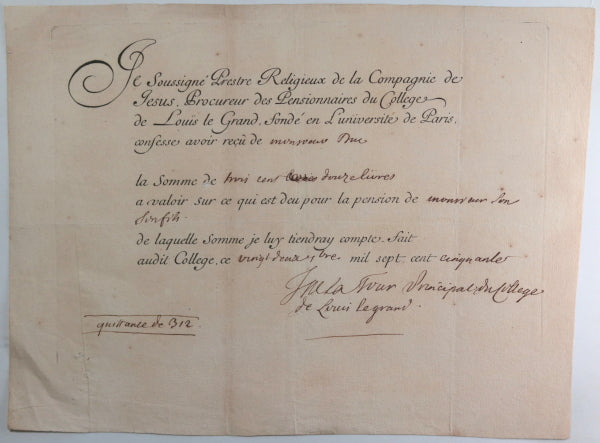 Je Soussigné Prestre Religieux de la Compagnie de
Jesus, Procureur des Pensionnaires du College
de Louïs le Grand, fondé en L'université de Paris,
confesse avoir reçû de monsieur Duc
la Somme de trois cent douze livres
a valoir sur ce qui est deu pour la pension de monsieur son
fils
de laquelle Somme je luy tiendray compte. Fait
audit College, ce vingt deux mil sept cent cinquante
la Tour Principal du College
de Louis legrand.
quittance de 312